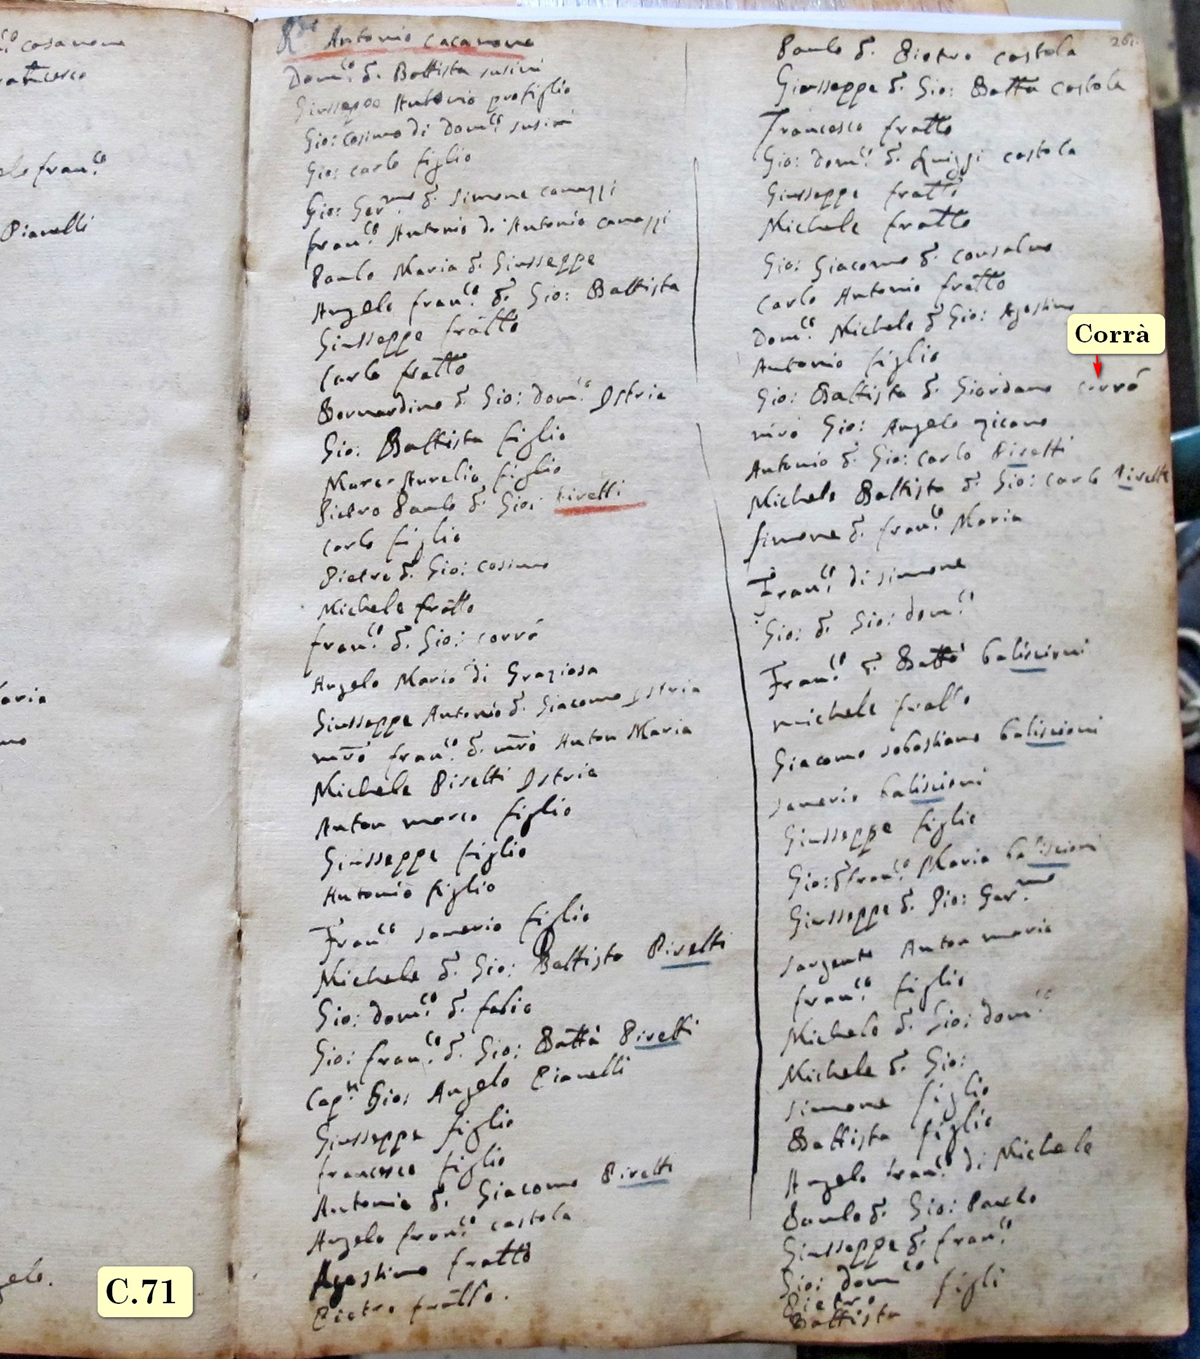 co: casanova
francesco
elo fran:co
Pianelli
Maria
gelo.
C.71
R:do Antonio Cacanone
Dom:co q. Battista susini
Giuseppe Antonio profiglio
Gio: Cosimo di Dom:co susini
Gio: carlo figlio
Gio: Ger:mo q. Simone canazzi
fran:co Antonio di Antonio canazzi
Paulo Maria q. Giuseppe
Angelo fran:co q. Gio: Battista
Giuseppe fratto
Carlo fratto
Bernardino q. Gio: Dom:co Istria
Gio: Battista figlio
Marc-Aurelio figlio
Pietro Paulo q. Gio: Piretti
Carlo figlio
Pietro q. Gio: cosimo
Michele fratto
fran:co q. Gio: corrà
Angelo Maria di Graziosa
Giuseppe Antonio q. Giacomo Istria
mro fran:co q. mro Anton Maria
Michele Piretti Istria
Anton marco figlio
Giuseppe figlio
Antonio figlio
Fran:co saverio figlio
Michele q. Gio: Battista Piretti
Gio: Dom:co q. felice
Gio: fran:co q. Gio: Batta Piretti
Cap:n Gio: Angelo Pianelli
Giuseppe figlio
francesco figlio
Antonio q. Giacomo Piretti
Angelo fran:co costola
Agostino fratto
Pietro fratto.
261
Paulo q. Pietro costola
Giuseppe q. Gio: Batta costola
Francesco fratto
Gio: Dom:co q. Luiggi costola
Giuseppe fratto
Michele fratto
Gio: Giacomo q. consalvo
Carlo Antonio fratto
Dom:co Michele q. Gio: Agostino
Antonio figlio
Corrà
Gio: Battista q. Giordano corrà
mro Gio: Angelo
Antonio q. Gio: carlo Piretti
Michele Battista q. Gio: carlo Piretti
simone q. fran:co Maria
Fran:co di simone
Gio: q. Gio: dom:co
Fran:co q. Batta baliscioni
michele fratto
Giacomo sebastiano baliscioni
saverio baliscioni
Giuseppe figlio
Gio: q. fran:co Maria baliscioni
Giuseppe q. Gio: Ger:mo
sargente Anton maria
fran:co figlio
Michele q. Gio: dom:co
Michele q. Gio:
simone figlio
Battista figlio
Angelo fran:co di Michele
Paulo q. Gio: Paulo
Giuseppe q. fran:co
Gio: Dom:co
Pietro figli
Battista